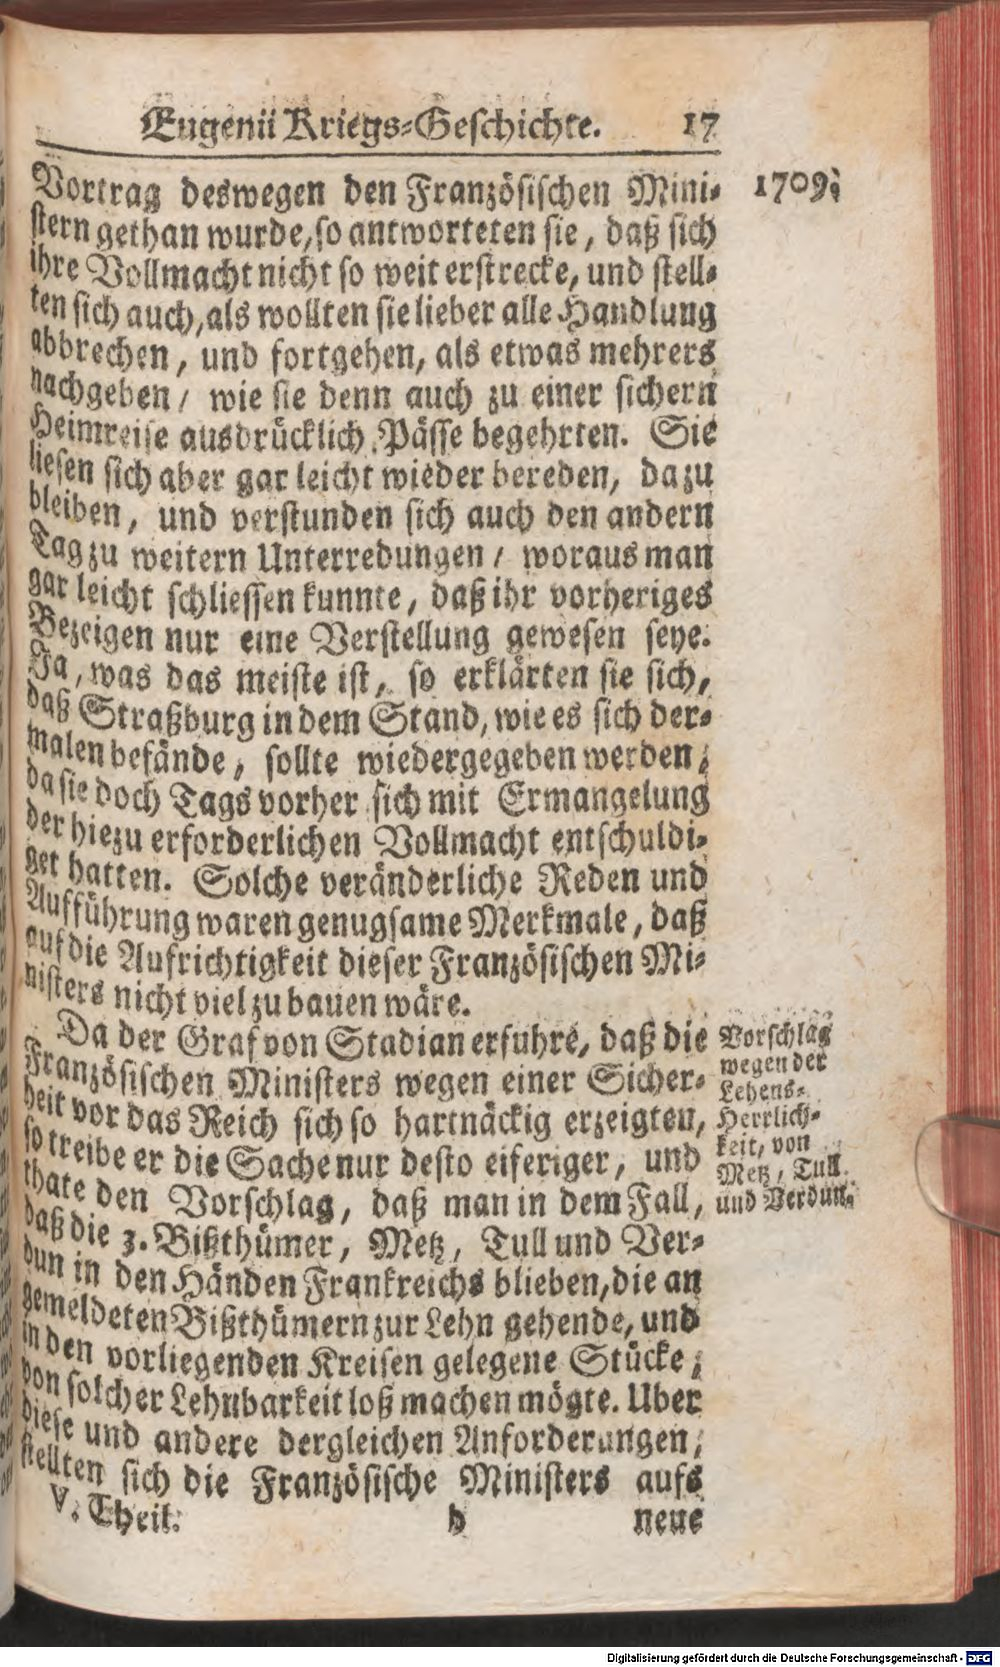 Eugenii Kriegs-Geschichte. 17
1709.
Vortrag deswegen den Französischen Mini-
stern gethan wurde, so antworteten sie, daß sich
ihre Vollmacht nicht so weit erstrecke, und stell-
ten sich auch, als wollten sie lieber alle Handlung
abbrechen, und fortgehen, als etwas mehrers
nachgeben / wie sie denn auch zu einer sichern
Heimreise ausdrücklich Pässe begehrten. Sie
liesen sich aber gar leicht wieder bereden, dazu
bleiben, und verstunden sich auch den andern
Tag zu weitern Unterredungen / woraus man
gar leicht schliessen kunnte, daß ihr vorheriges
Bezeigen nur eine Verstellung gewesen seye.
Ja, was das meiste ist, so erklärten sie sich,
daß Straßburg in dem Stand, wie es sich der-
malen befände, sollte wiedergegeben werden,
da sie doch Tags vorher sich mit Ermangelung
der hiezu erforderlichen Vollmacht entschuldi-
get hatten. Solche veränderliche Reden und
Aufführung waren genugsame Merkmale, daß
auf die Aufrichtigkeit dieser Französischen Mi-
nisters nicht viel zu bauen wäre.
Da der Graf von Stadian erfuhre, daß die
Französischen Ministers wegen einer Sicher-
heit vor das Reich sich so hartnäckig erzeigten,
so treibe er die Sache nur desto eiferiger, und
thate den Vorschlag, daß man in dem Fall,
daß die 3. Bißthümer, Metz, Tull und Ver-
dun in den Händen Frankreichs blieben, die an
gemeldeten Bißthümern zur Lehn gehende, und
in den vorliegenden Kreisen gelegene Stücke,
von solcher Lehnbarkeit loß machen mögte. Uber
diese und andere dergleichen Anforderungen,
stellten sich die Französische Ministers aufs
Vorschlag
wegen der
Lehens-
Herrlich-
keit, von
Metz, Tull
und Verdun.
V. Theil. b neue
Digitalisierung gefördert durch die Deutsche Forschungsgemeinschaft - DFG